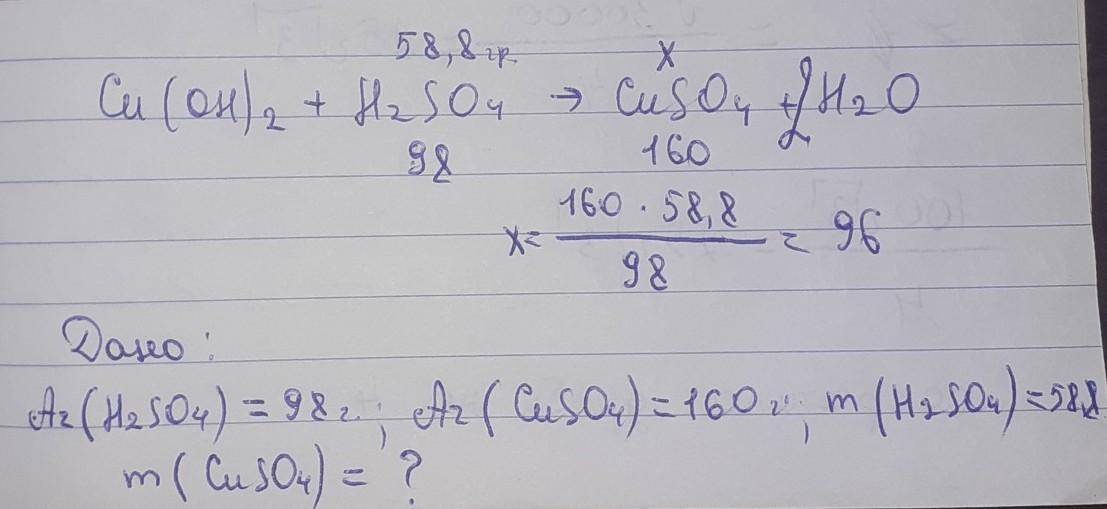 58,8 гр. x
Cu(OH)2 + H2SO4 → CuSO4 + 2H2O
98 160
x = 160 · 58,8 / 98 = 96
Дано:
Az(H2SO4) = 98 г; Az(CuSO4) = 160 г; m(H2SO4) = 58,8
m(CuSO4) = ?